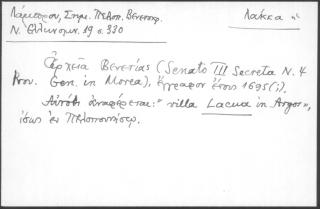 Λάμπρου, Σημ. Πελοπ. Βενετοκρ. Λάκκα "
Ν. Ελληνομν. 19 σ. 330
Ἀρχεῖα Βενετίας (Senato III Secreta N. 4
Prov. Gen. in Morea), ἔγγραφον ἔτους 1695(;).
Αὐτόθι ἀναφέρεται: "villa Lacua in Argos",
ἴσως ἐν Πελοποννήσῳ.